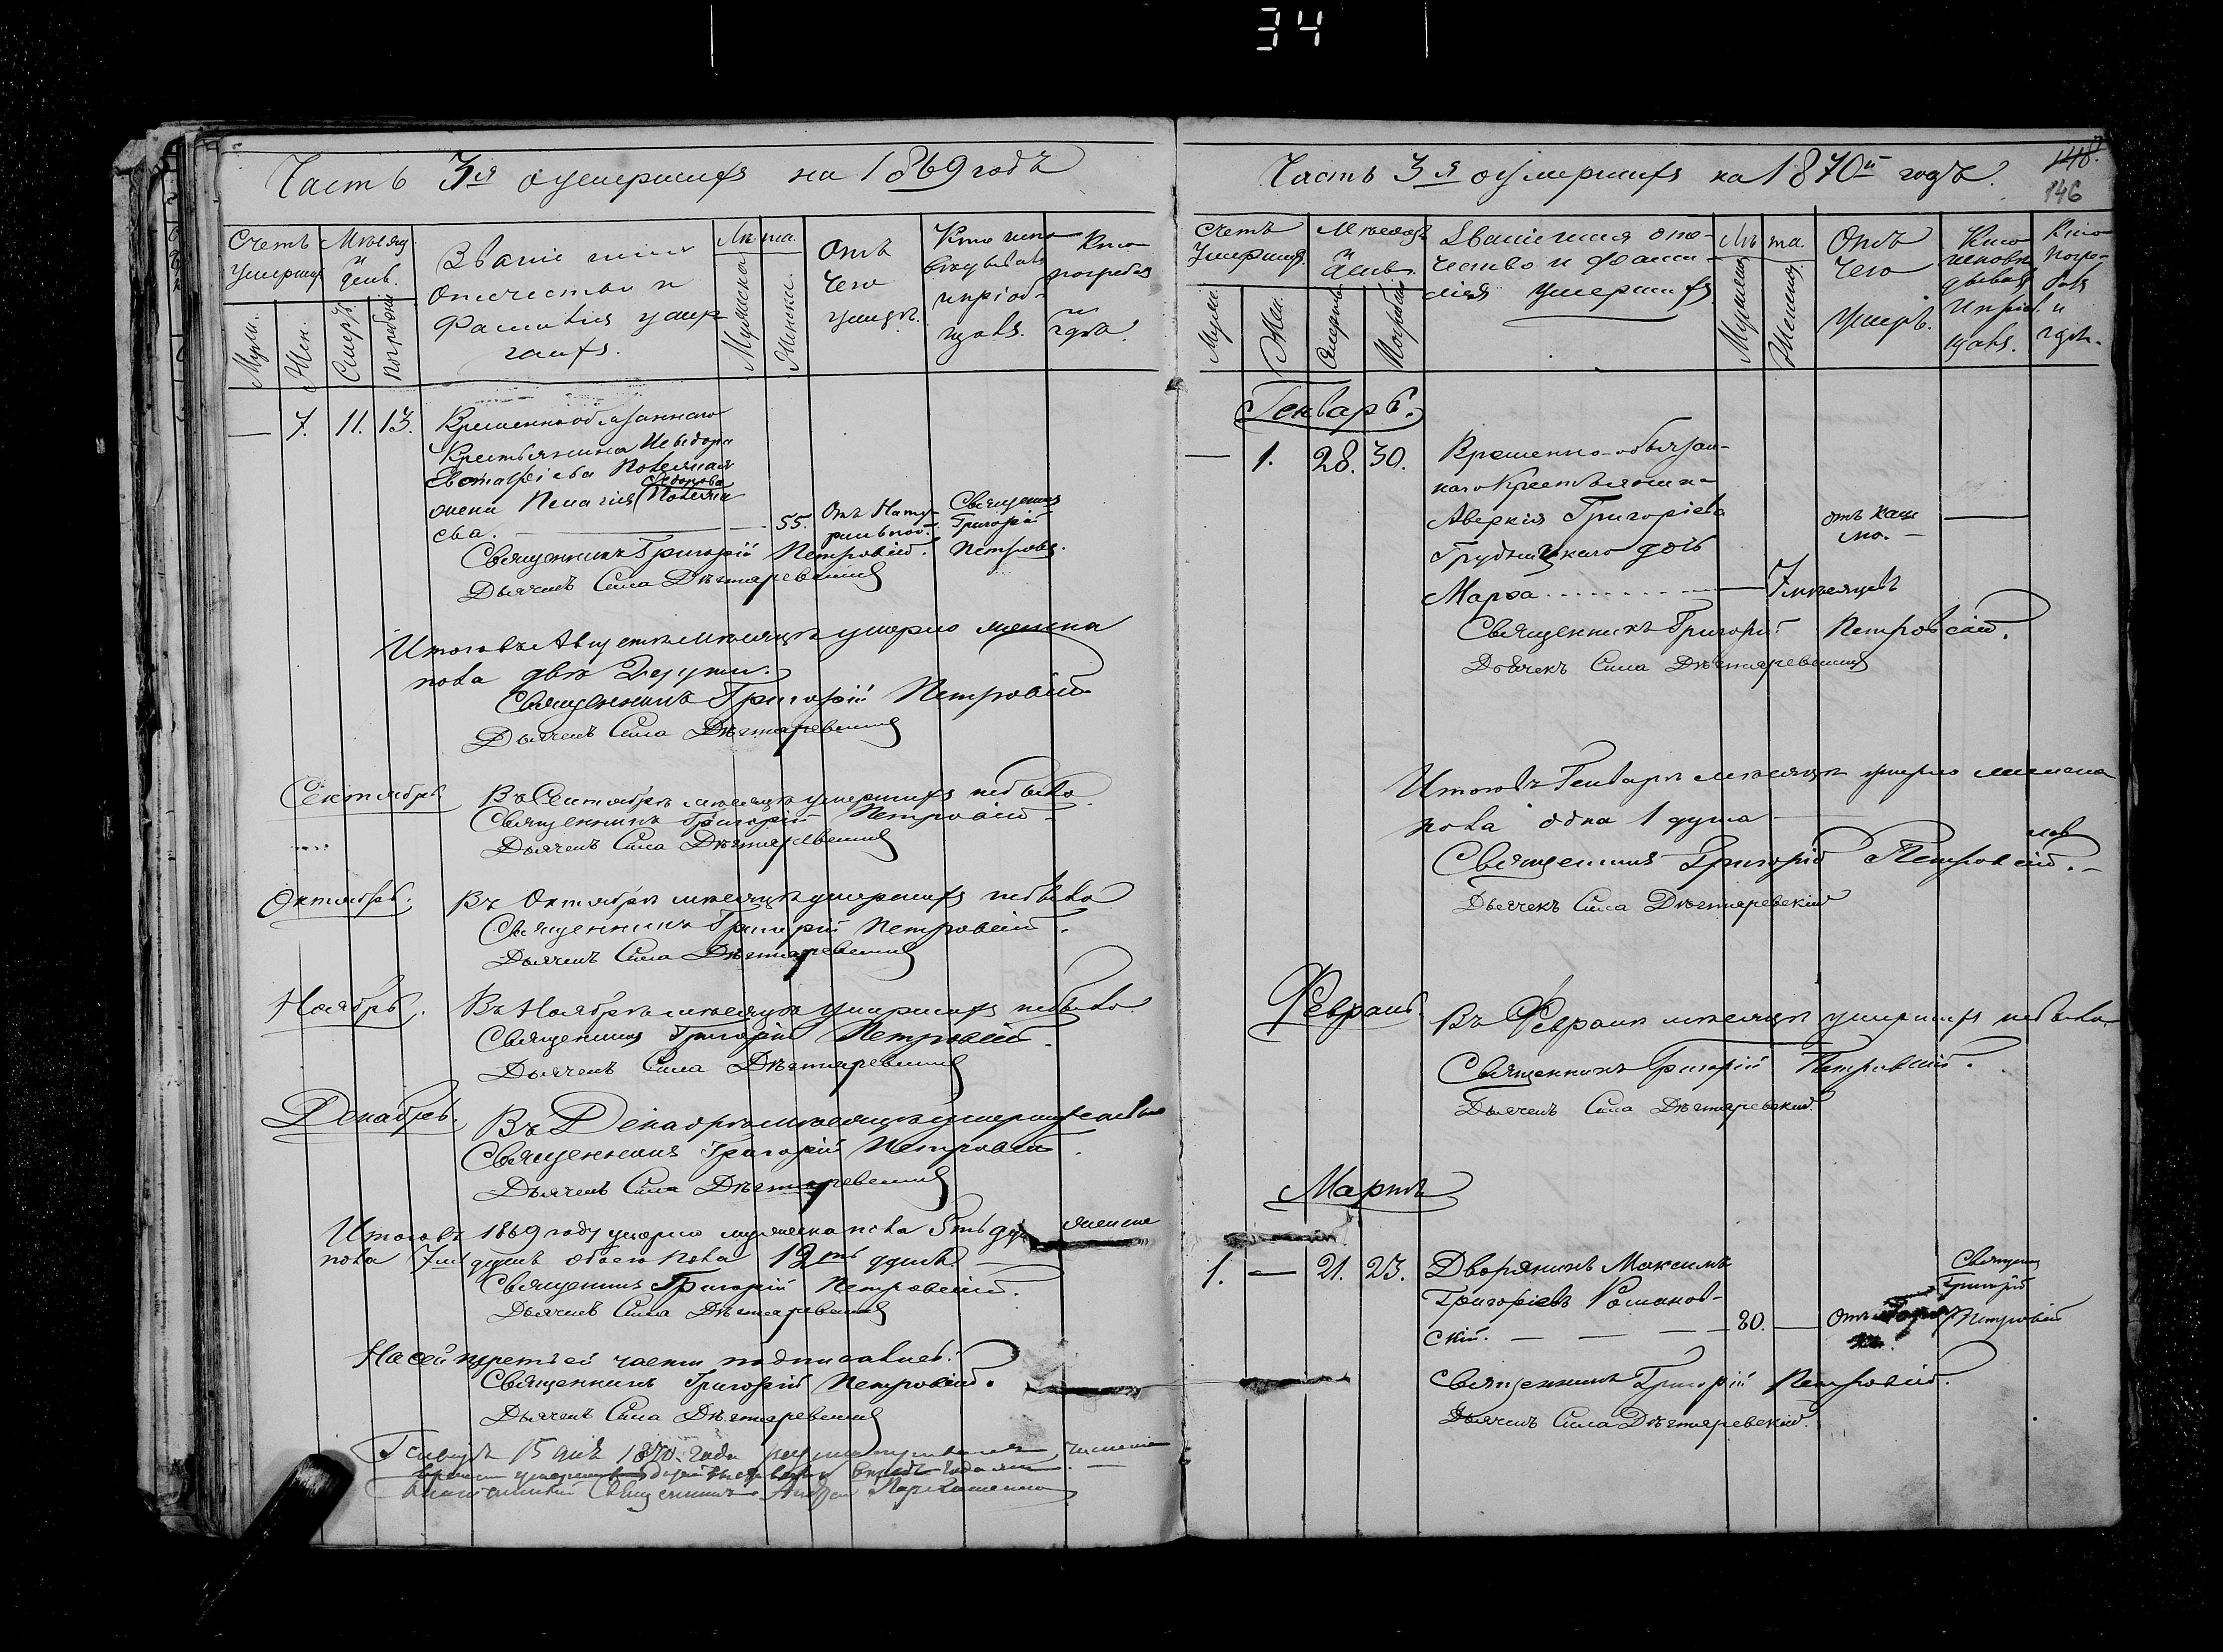 34
Часть 3я о умершихъ на 1869 годъ
Счетъ умершихъ
Мѣсяцъ и день.
Званіе имя отечество и фамилія умер
шихъ.
Лѣта.
Отъ чего умеръ.
Кто испо
вѣдывалъ
и пріоб-
щалъ.
Кто
погребалъ
и
гдѣ.
Мужи.
Жен.
Смерть
Погребенія
Мужеска
Женски.
— 7. 11. 13. Временнообязаннаго
Крестьянина
жена Пелагія
ева. — 55. Отъ Нату-
ральной. Священникъ Григорій Петровс.
Священникъ Григорій Петровскій.
Дьячекъ Сила Дѣгтяревскій
Итого въ Августѣ мѣсяцѣ умерло женска
пола двѣ души.
Священникъ Григорій Петровскій
Дьячекъ Сила Дѣгтяревскій
Сентябрь Въ Сентябрѣ мѣсяцѣ умершихъ небыло
Священникъ Григорій Петровскій
Дьячекъ Сила Дѣгтяревскій
Октябрь. Въ Октябрѣ мѣсяцѣ умершихъ небыло
Священникъ Григорій Петровскій.
Дьячекъ Сила Дѣгтяревскій
Ноябрь. Въ Ноябрѣ мѣсяцѣ умершихъ небыло
Священникъ Григорій Петровскій.
Дьячекъ Сила Дѣгтяревскій
Декабрь. Въ Декабрѣ мѣсяцѣ умершихъ небыло
Священникъ Григорій Петровскій.
Дьячекъ Сила Дѣгтяревскій
Итого въ 1869 году умерло мужеска пола 5ть душъ женска
пола 7мь душъ обоего пола 12ть душъ —
Священникъ Григорій Петровскій.
Дьячекъ Сила Дѣгтяревскій
На сей третьей части подписались:
Священникъ Григорій Петровскій.
Дьячекъ Сила Дѣгтяревскій
Генваря 15 дня 1870 года
Священникъ Андрей
Часть 3я о умершихъ на 1870й годъ.
148.
146
Счетъ
Умершихъ.
Мѣсяцъ
и
День.
Званіе имя оте-
чество и фами-
лія умершихъ
Лѣта.
Отъ
чего
умеръ.
Кто
исповѣ
дывалъ
и пріоб.
щалъ.
Кто
погре-
балъ
и
гдѣ.
Мужи.
Жен.
Смерть
Погребен
Мужеска
Женска
Генварь.
— 1. 28. 30. Временно-обязан-
наго Крестьянина
Аверкія Григорьева
Грудницкаго дочь
Марѳа — 7 мѣсяцевъ отъ каш
ля. —
Священникъ Григорій Петровскій.
Дьячекъ Сила Дѣгтяревскій
Итого въ Генварѣ мѣсяцѣ умерло женска
пола одна 1 душа —
Священникъ Григорій Петровскій. —
Дьячекъ Сила Дѣгтяревскій
Февраль. Въ Февралѣ мѣсяцѣ умершихъ небыло.
Священникъ Григорій Петровскій.
Дьячекъ Сила Дѣгтяревскій.
Мартъ
1. — 21. 23. Дворянинъ Максимъ
Григорьевъ Романов-
скій. — — — 80. — Отъ Священ
Григорій
Петровскій
Священникъ Григорій Петровскій.
Дьячекъ Сила Дѣгтяревскій.